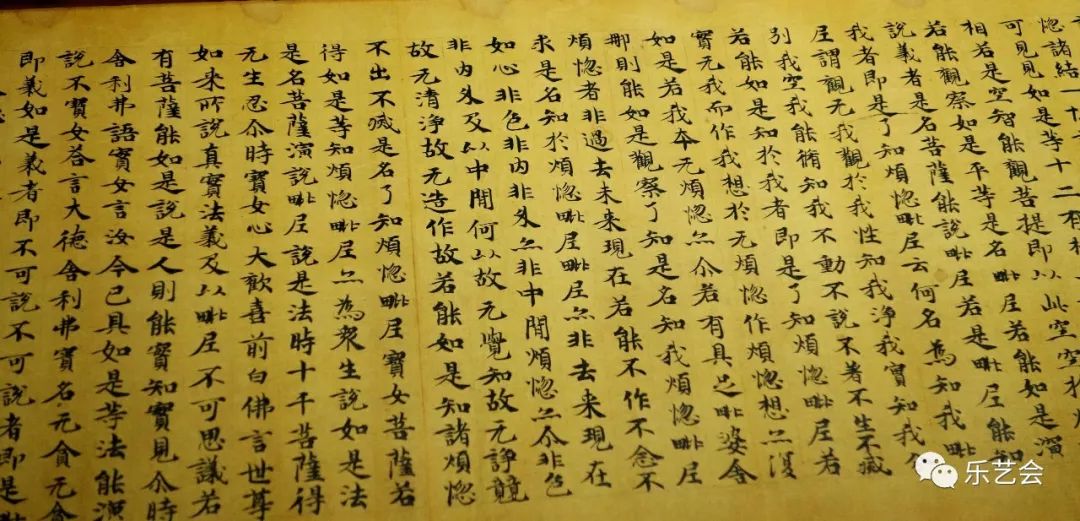 惱諸結一
可見見如是等十二有
相若是空智能觀菩提即以此空空於
若能觀察如是平等是名毗尼若能如是演
說義者是名菩薩能說毗尼若是毗尼能知
我者即是了知煩惱毗尼云何名為知我毗
尼謂觀无我觀於我性知我淨我實知我
別我空我能脩知我不動不說不著不生不滅
若能如是知於我者即是了知煩惱毗尼若
實无我而作我想於无煩惱作煩惱想亦復
如是若我本无煩惱亦尒若有具足毗婆舍
那則能如是觀察了知是名知我煩惱毗尼
煩惱者非過去未来現在若能不作不念不
求是名知於煩惱毗尼亦非去来現在
如心非色非内非外亦非中間煩惱亦尒非色
非内外及以中間何以故无覺知故无諍競
故无清淨故无造作故若能如是知諸煩惱
不出不滅是名了知煩惱毗尼寶女菩薩若
得如是等知煩惱毗尼亦為衆生說如是法
是名菩薩演說毗尼說是法時十千菩薩得
无生忍尒時寶女心大歡喜前白佛言世尊
如来所說真實法義及以毗尼不可思議若
有菩薩能如是說是人則能實知實見尒時
舍利弗語寶女言汝今已具如是等法能演
說不寶女荅言大德舍利弗實名无貪无貪
即義如是義者即不可說不可說者即是
乐艺会